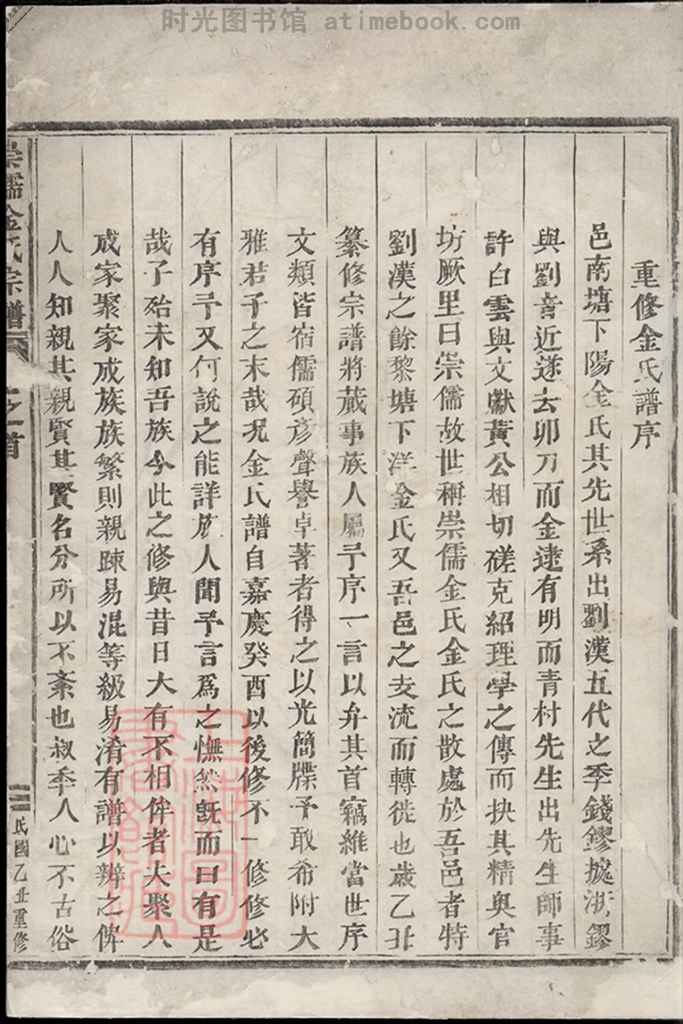 时光图书馆 atimebook.com
重修金氏譜序
邑南塘下陽金氏其先世系出劉漢五代之季錢鏐據浙鏐
與劉音近遂去卯刀而金逮有明而青村先生出先生師事
許白雲與文獻黃公相切磋克紹理學之傳而抉其精奧官
坊厥里曰崇儒故世稱崇儒金氏金氏之散處於吾邑者特
劉漢之餘黎塘下洋金氏又吾邑之支流而轉徙也歲乙丑
纂修宗譜將蕆事族人屬予序一言以弁其首竊維當世序
文類皆宿儒碩彥聲譽卓著者得之以光簡牒予敢希附大
雅君子之末哉况金氏譜自嘉慶癸酉以後修不一修修必
有序予又何說之能詳族人聞予言爲之憮然旣而曰有是
哉子殆未知吾族今此之修與昔日大有不相侔者夫聚人
成家聚家成族族繁則親踈易混等級易淆有譜以辨之俾
人人知親其親賢其賢名分所以不紊也叔季人心不古俗
崇儒金氏宗譜
卷之首
民國乙丑重修